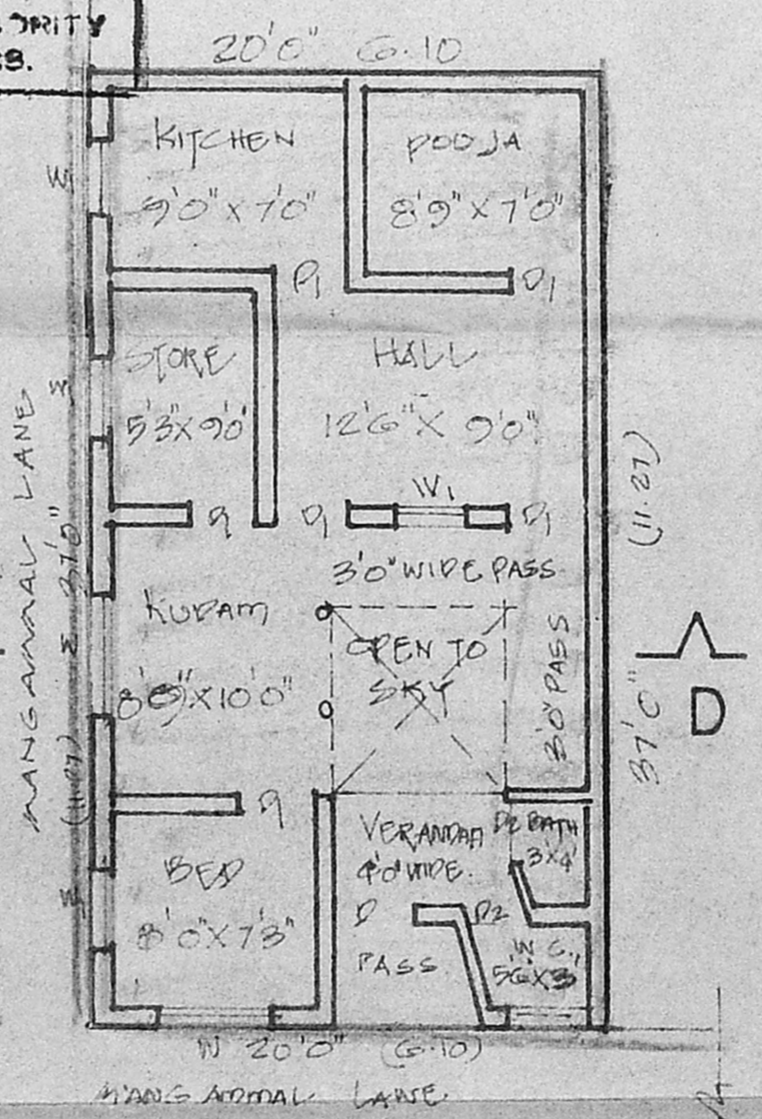 ORITY
20'0" 6.10
KITCHEN
9'0" X 7'0"
POOJA
8'9" X 7'0"
W
D1
D1
STORE
5'3" X 9'0"
HALL
12'6" X 9'0"
W
W1
D1
D1
D1
3'0" WIDE PASS
KUDAM
8'0" X 10'0"
OPEN TO
SKY
3'0" PASS
MANGAMMAL LANE
37'0"
(11.27)
(11.27)
37'0"
D
D1
VERANDAH
4'0" WIDE.
D2 BATH
3X4'
BED
8'0" X 7'3"
W
D
D2
PASS
W.C.
5'6" X 3'
W 20'0" (6.10)
MANGAMMAL LANE